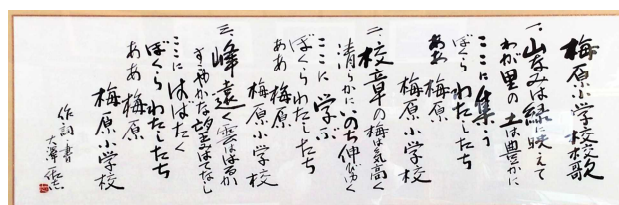 梅原小学校校歌
一、山なみは緑に映えて
わが里の土は豊かに
ここに集う
ぼくらわたしたち
ああ梅原
梅原小学校
二、校章の梅は気高く
清らかにいのち伸びゆく
ここに学ぶ
ぼくらわたしたち
ああ梅原
梅原小学校
三、峰遠く雲ははるか
すこやかな望みはてなし
ここにはばたく
ぼくらわたしたち
ああ梅原
梅原小学校
作詞 書
大澤